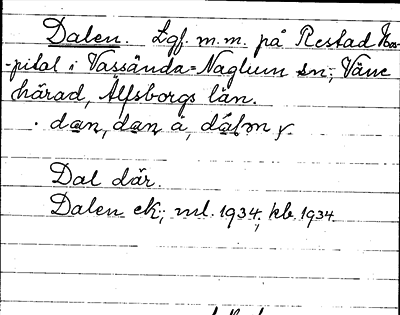 Dalen. Lgf. m.m. på Restad Hos-
-pital i Vassända=Naglum sn; Väne
härad, Älfsborgs län.
Dal där.
Dalen ek; ml. 1934, kb. 1934